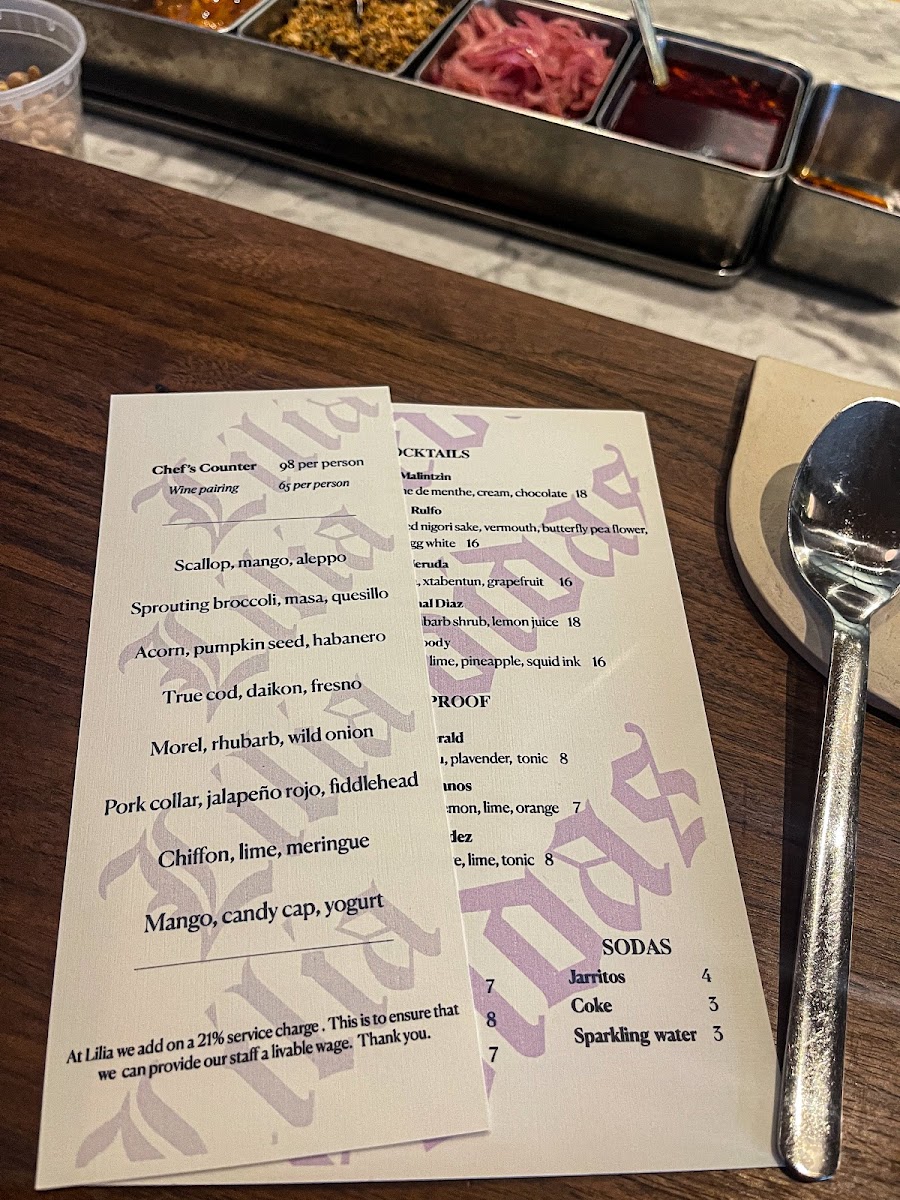 Chef's Counter 98 per person
Wine pairing 65 per person
Scallop, mango, aleppo
Sprouting broccoli, masa, quesillo
Acorn, pumpkin seed, habanero
True cod, daikon, fresno
Morel, rhubarb, wild onion
Pork collar, jalapeño rojo, fiddlehead
Chiffon, lime, meringue
Mango, candy cap, yogurt
At Lilia we add on a 21% service charge . This is to ensure that
we can provide our staff a livable wage. Thank you.
Lilia
Lilia
Lilia
Lilia
Lilia
OCKTAILS
Malintzin
de menthe, cream, chocolate 18
Rulfo
nigori sake, vermouth, butterfly pea flower,
gg white 16
eruda
xtabentun, grapefruit 16
Diaz
barb shrub, lemon juice 18
body
lime, pineapple, squid ink 16
PROOF
rald
plavender, tonic 8
nos
emon, lime, orange 7
dez
e, lime, tonic 8
SODAS
Jarritos 4
Coke 3
Sparkling water 3
7
8
7